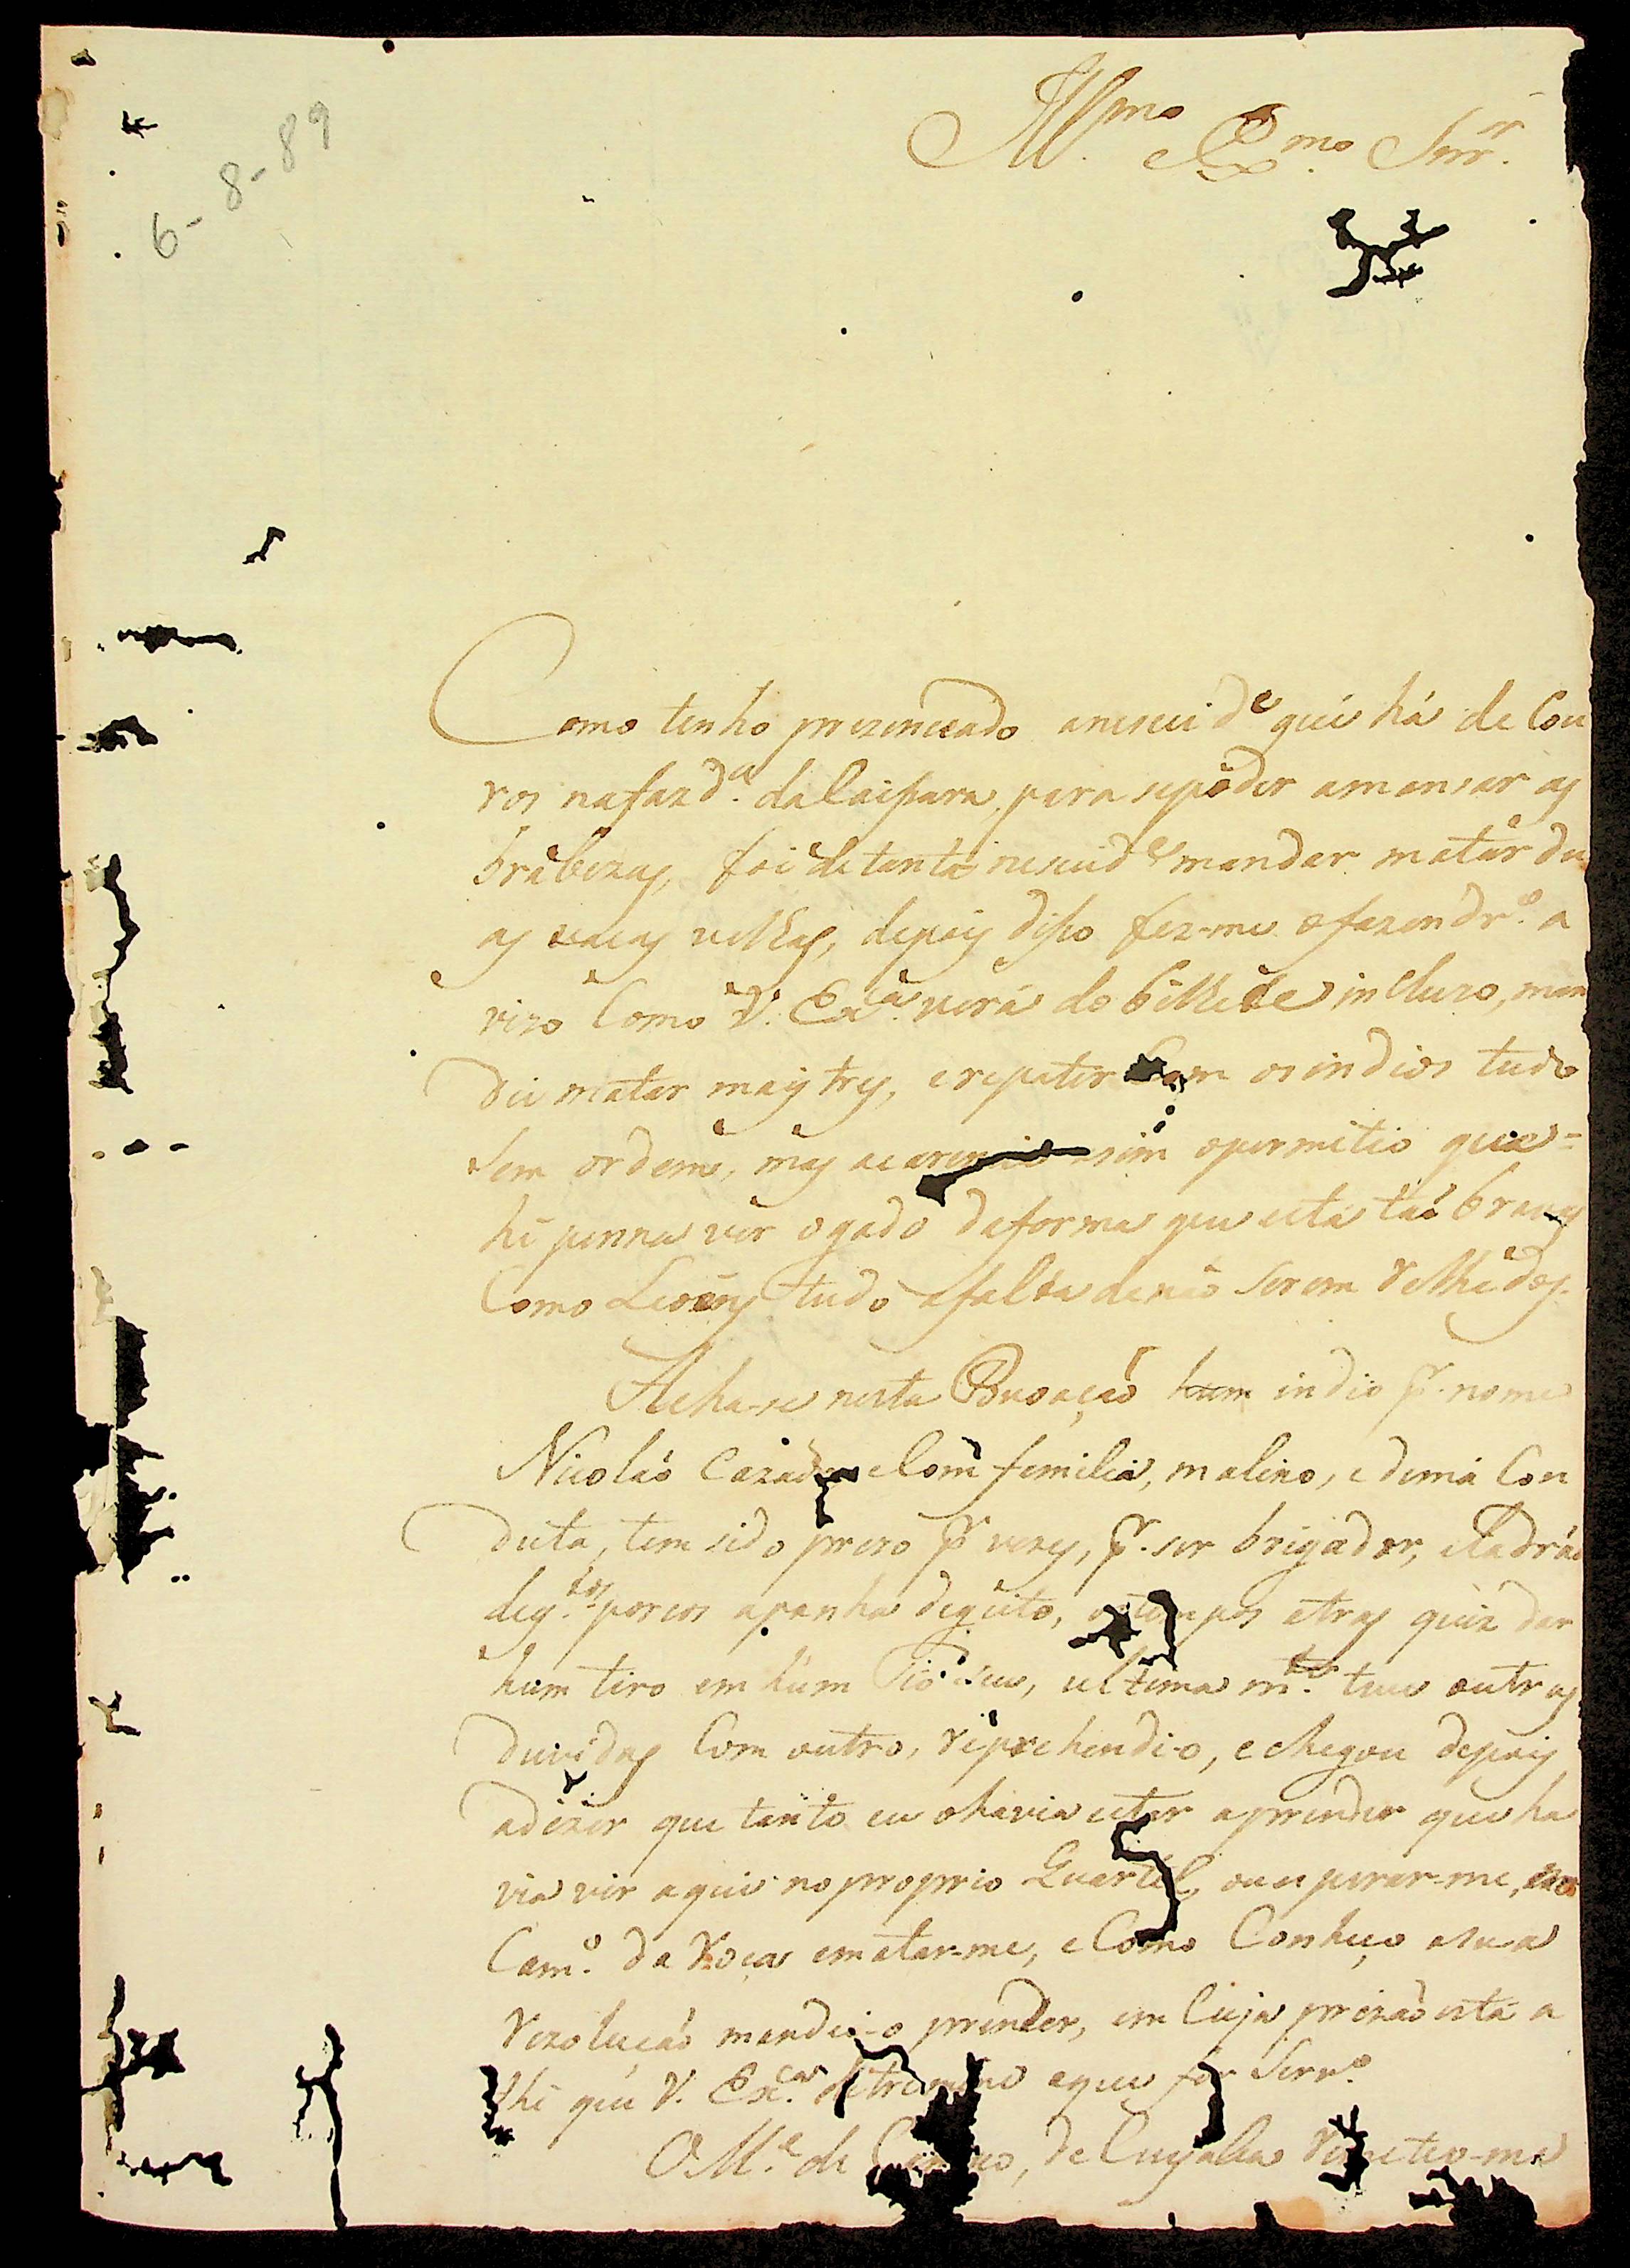 6-8-89
Ill.mo Ex.mo Snr.
Como tenho prezenceado anescid.e que há de Cou
ros nafazd.a daCaiſsara, para sepoder amansar as
brabezas, foi detanta nescid.e mandar matar du
as vacas velhas, depois diſso fez-me ofazendr.o a
vizo Como V. Ex.ca verá do bilhete incluzo, man
dei matar mais tres, erepatir Com osindios tudo
Sem ordem, mas acarencia asim opermitio que =
hé penna ver ogado daforma que está taó bravos
Como Leoens tudo afalta denaó Serem Velhádos.
Acha-se nesta Povoaçaó hum indio p.r nome
Nicoláo Cazado eCom familia, malino, edemá Con
duta, tem sido prezo p.r vezes, p.r ser brigador, eLadraó
deq.tos porcos apanha degeito, ostempos atras quiz dar
hum tiro em hum Tio seu, ultima m.te teve outras
duvidas Com outro, reprehendi-o, e chegou depois
adizer que tanto eu ohavia estar aprender que ha
via vir aqui noproprio Quartel, ouesperar-me, no
Cam.o da Roça ematar-me, eComo Conheço asua
Rezoluçaó mandei-o prender, em Cuja prizaó está a
thé que V. Ex.ca detremine oque for Serv.o
OM.e de Campo, de Cuyaba Remeteo-me